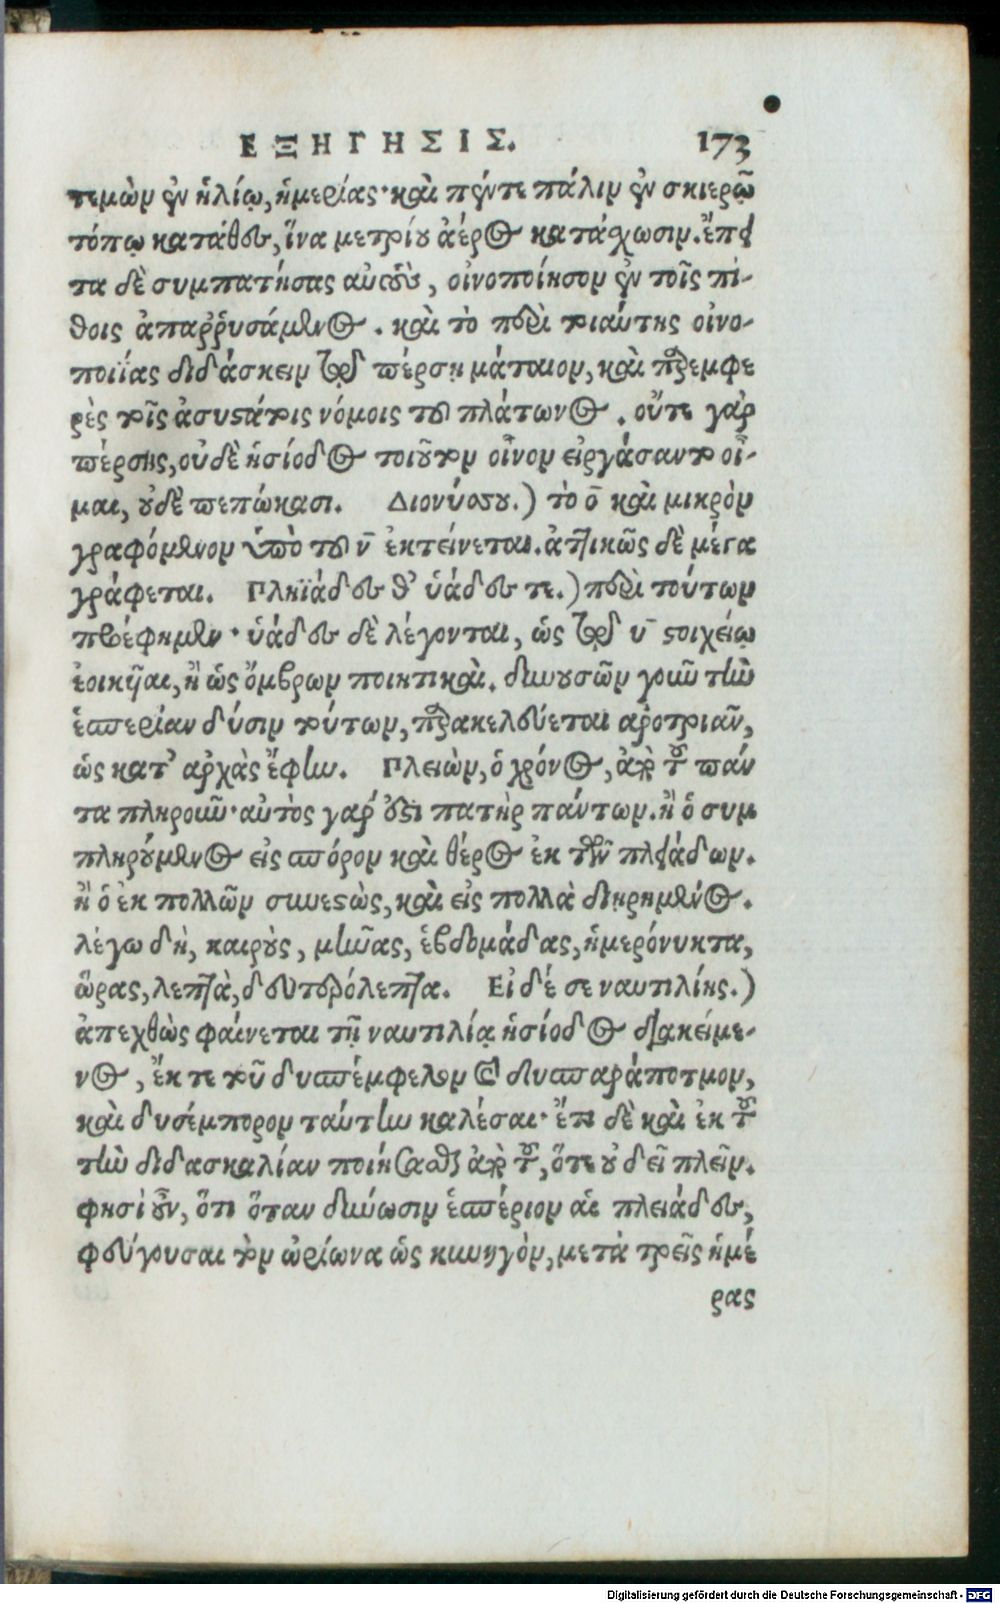 ΕΞΗΓΗΣΙΣ. 173
τεμὼν ἐν ἡλίῳ, ἡμερίας· καὶ πέντε πάλιν ἐν σκιερῷ
τόπῳ κατάθες, ἵνα μετρίου ἀέρος κατάχωσιν. ἔπει
τα δὲ συμπατήσας αὐτοὺς, οἰνοποίησον ἐν τοῖς πί-
θοις ἀπαῤῥυσάμενος. καὶ τὸ περὶ τοιαύτης οἰνο-
ποιΐας διδάσκειν τῷ πέρσῃ μάταιον, καὶ παρεμφε
ρὲς τοῖς ἀσυστάτοις νόμοις τοῦ πλάτωνος. οὔτε γὰρ
πέρσης, οὐδὲ ἡσίοδος τοιοῦτον οἶνον εἰργάσαντο οἶ-
μαι, οὐδὲ πεπώκασι. Διονύσου.) τὸ ο̄ καὶ μικρὸν
γραφόμενον ὑπὸ τοῦ ν̄ ἐκτείνεται. ἀττικῶς δὲ μέγα
γράφεται. Πληϊάδες θ' ὑάδες τε.) περὶ τούτων
προέφημεν· ὑάδες δὲ λέγονται, ὡς τῷ ῡ στοιχείῳ
ἐοικῆαι, ἢ ὡς ὄμβρων ποιητικαὶ. δυνουσῶν γοῦν τὴν
ἑσπερίαν δύσιν τούτων, παρακελεύεται ἀροτριᾶν,
ὡς κατ' ἀρχὰς ἔφην. Πλειὼν, ὁ χρόνος, ἀπὸ τοῦ πάν
τα πληροῦν· αὐτὸς γάρ ἐστι πατὴρ πάντων. ἢ ὁ συμ
πληρούμενος εἰς σπόρον καὶ θέρος ἐκ τῶν πλειάδων.
ἢ ὁ ἐκ πολλῶν συνεστὼς, καὶ εἰς πολλὰ διῃρημένος.
λέγω δὴ, καιροὺς, μῆνας, ἑβδομάδας, ἡμερόνυκτα,
ὥρας, λεπτὰ, δευτερόλεπτα. Εἰ δέ σε ναυτιλίης.)
ἀπεχθὼς φαίνεται τῇ ναυτιλίᾳ ἡσίοδος διακείμε-
νος, ἔκ τε τοῦ δυσπέμφελον καὶ δυσπαράποτμον,
καὶ δυσέμπορον ταύτην καλέσαι· ἔτι δὲ καὶ ἐκ τοῦ
τὴν διδασκαλίαν ποιήσασθαι ἀπὸ τοῦ, ὅτε οὐ δεῖ πλεῖν.
φησὶ οὖν, ὅτι ὅταν δύνωσιν ἑσπέριον αἱ πλειάδες,
φεύγουσαι τὸν ὠρίωνα ὡς κυνηγὸν, μετὰ τρεῖς ἡμέ
ρας
Digitalisierung gefördert durch die Deutsche Forschungsgemeinschaft - DFG